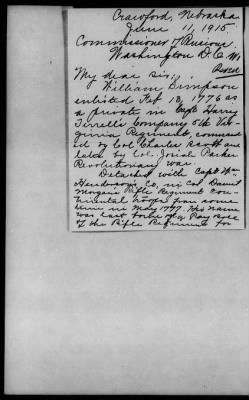 Crawford, Nebraska
June 11, 1915.
Commissioner of Pensions
Washington D.C.
My dear Sir;
William Simpson
enlisted Feb 18, 1776 as
a private in Capt Harry
Terrell's Company 5th Vir-
ginia Regiment, command
ed by Col Charles Scott and
later by Col. Josiah Parker
Revolutionary war.
Detached with Capt Wm
Henderson's Co, in Col Daniel
Morgan's Rifle Regiment Con-
tinental troops from some
time in May 1777. His name
was last borne on a Pay Roll
of the Rifle Regiment for